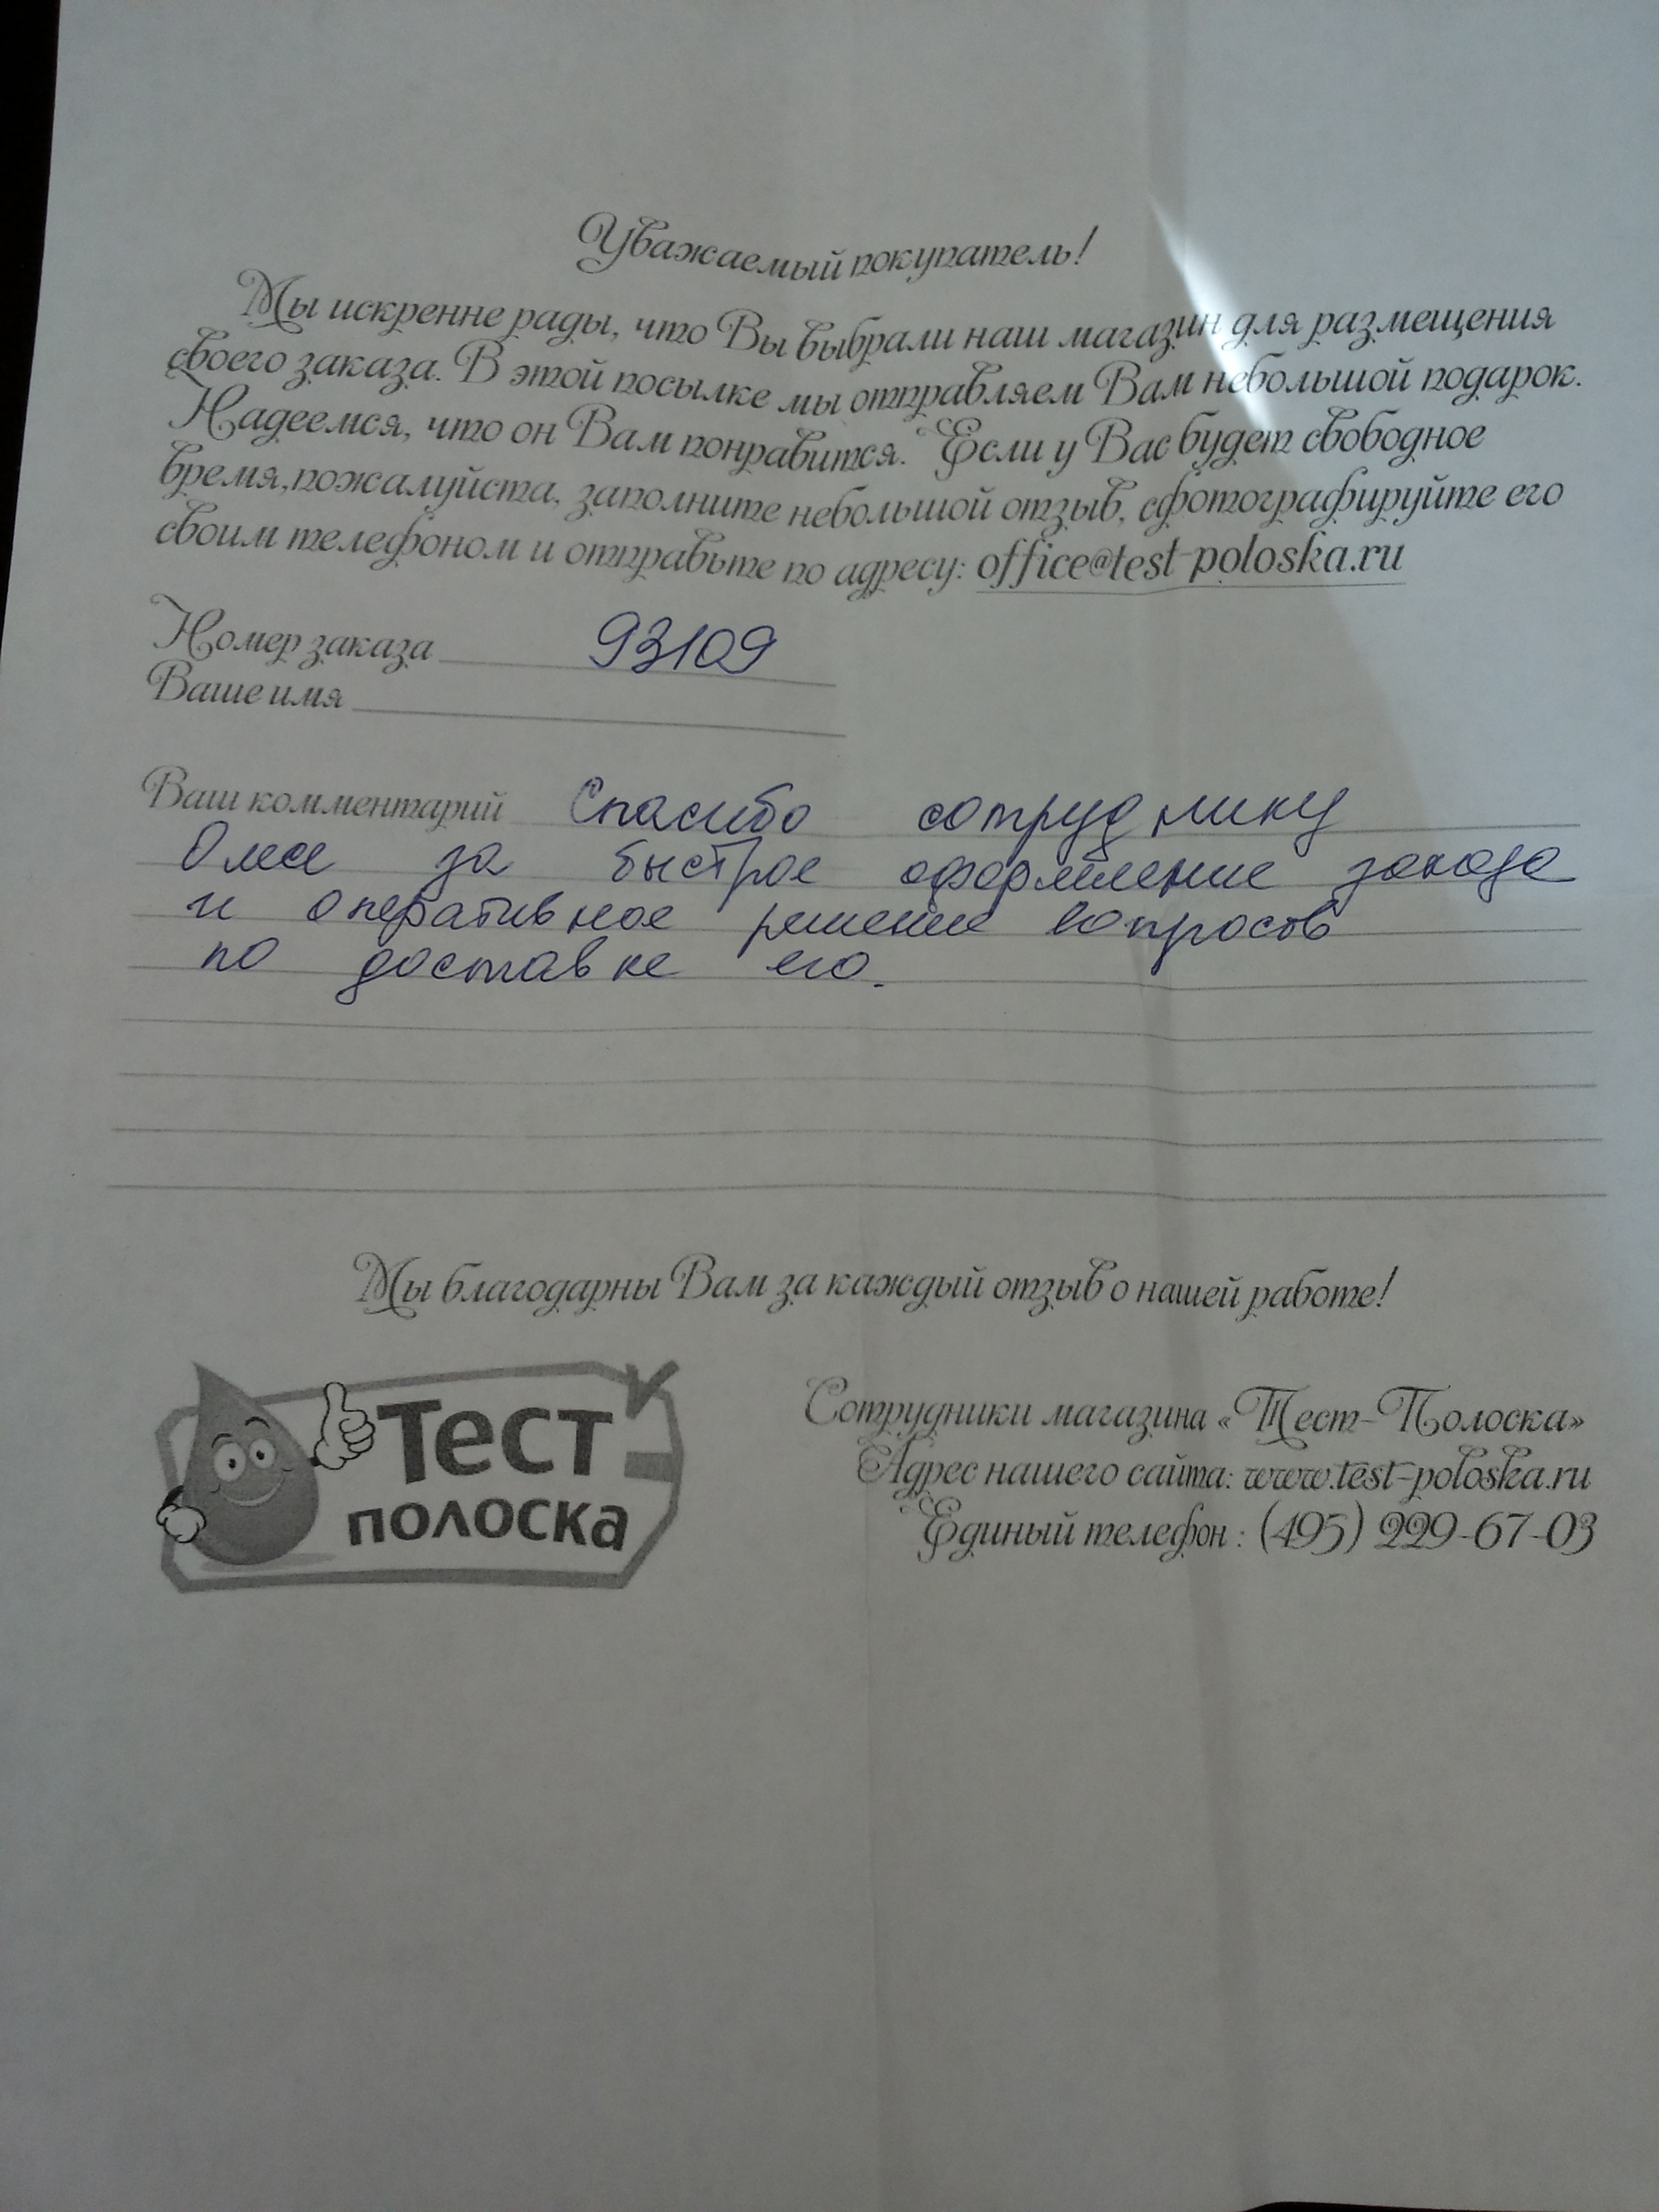 Уважаемый покупатель!
Мы искренне рады, что Вы выбрали наш магазин для размещения
своего заказа. В этой посылке мы отправляем Вам небольшой подарок.
Надеемся, что он Вам понравится. Если у Вас будет свободное
время,пожалуйста, заполните небольшой отзыв, сфотографируйте его
своим телефоном и отправьте по адресу: office@test-poloska.ru
Номер заказа 93109
Ваше имя
Ваш комментарий Спасибо сотруднику
Олесе за быстрое оформление заказа
и оперативное решение вопросов
по доставке его.
Мы благодарны Вам за каждый отзыв о нашей работе!
Тест
полоска
Сотрудники магазина «Тест-Полоска»
Адрес нашего сайта: www.test-poloska.ru
Единый телефон : (495) 229-67-03